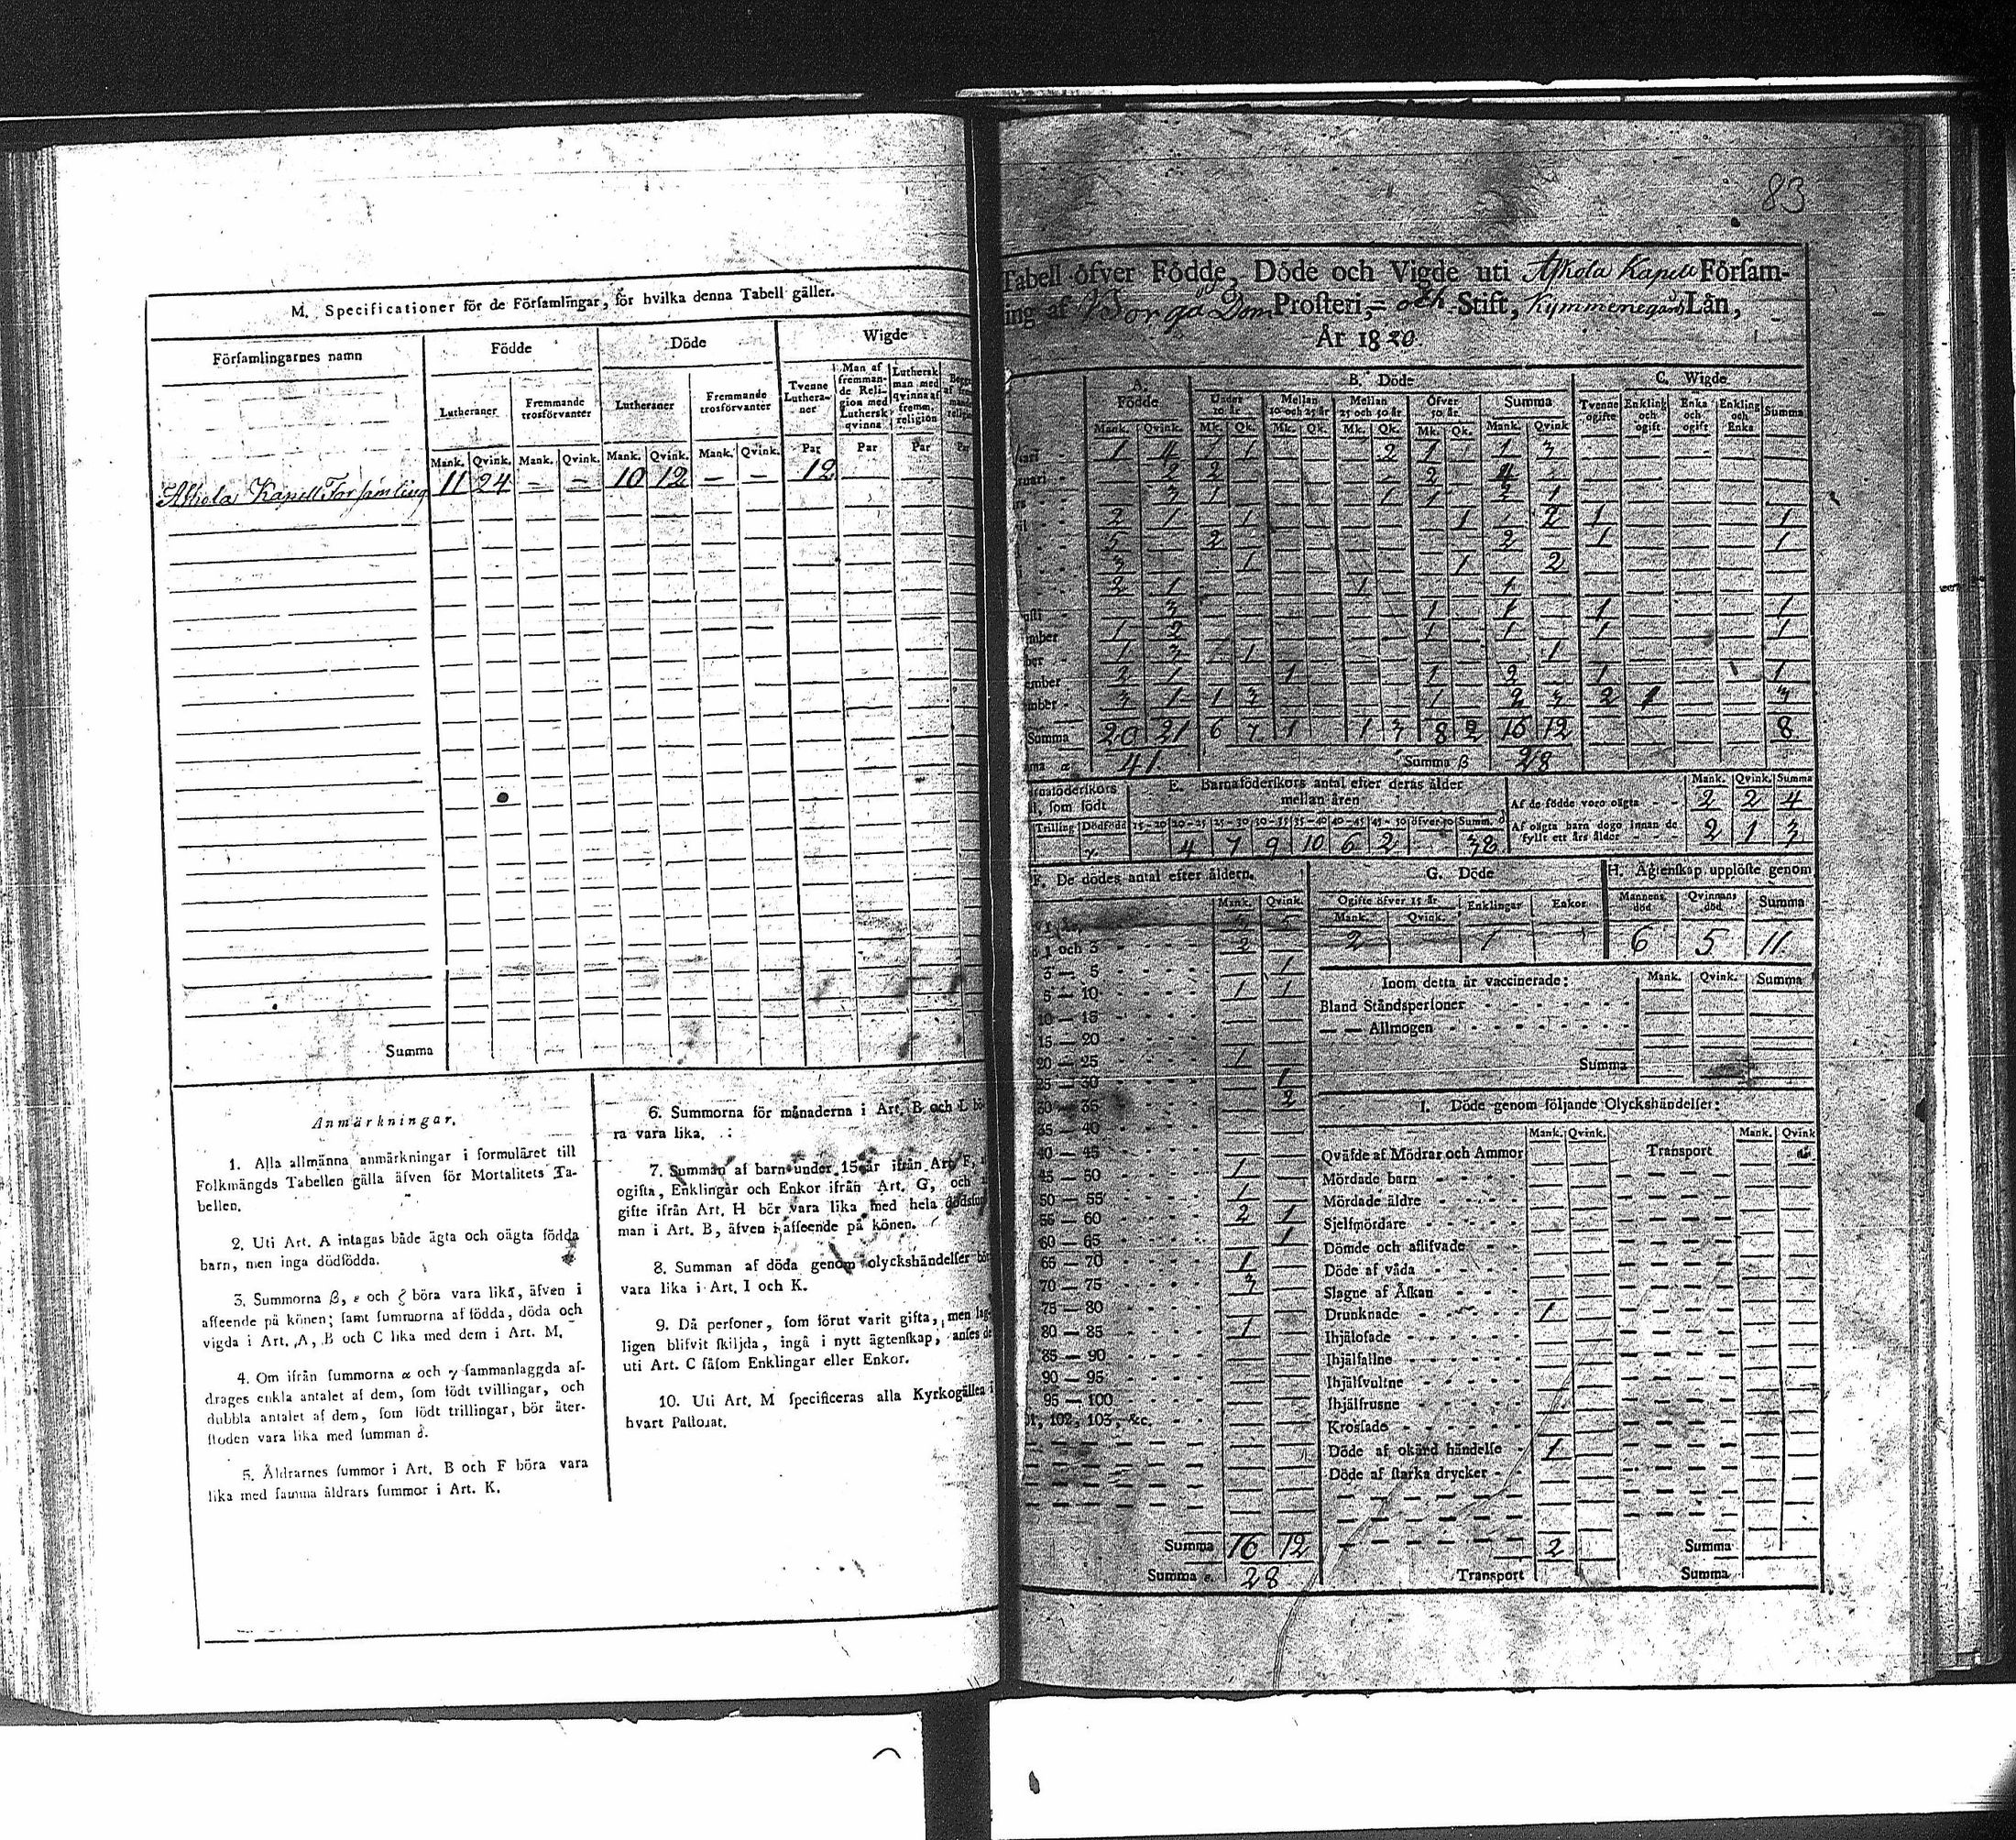 M. Specificationer för de Församlingar, för hvilka denna Tabell gäller.
Församlingarnes namn
Födde
Döde
Wigde
Lutheraner
Fremmande trosförvanter
Lutheraner
Fremmande trosförvanter
Tvenne Lutheraner
Man af fremmande Religion med Luthersk qvinna
Luthersk man med qvinna af fremm. religion
Mank. Qvink. Mank. Qvink. Mank. Qvink. Mank. Qvink. Par Par Par
Askola Kapell Församling 11 24 — — 10 12 — — 12
Summa
Anmärkningar.
1. Alla allmänna anmärkningar i formuläret till
Folkmängds Tabellen gälla äfven för Mortalitets Ta-
bellen.
2. Uti Art. A intagas både ägta och oägta födda
barn, men inga dödfödda.
3. Summorna β, ε och ζ böra vara lika, äfven i
afseende på könen; samt summorna af födda, döda och
vigda i Art. A, B och C lika med dem i Art. M.
4. Om ifrån summorna α och γ sammanlaggda af-
drages enkla antalet af dem, som födt tvillingar, och
dubbla antalet af dem, som födt trillingar, bör åter-
stoden vara lika med summan δ.
5. Åldrarnes summor i Art. B och F böra vara
lika med samma åldrars summor i Art. K.
6. Summorna för månaderna i Art. B och L bö-
ra vara lika.
7. Summan af barn under 15 år ifrån Art. F,
ogifta, Enklingar och Enkor ifrån Art. G, och
gifte ifrån Art. H bör vara lika med hela
man i Art. B, äfven i afseende på könen.
8. Summan af döda genom olyckshändelser bör
vara lika i Art. I och K.
9. Då personer, som förut varit gifta, men
ligen blifvit skiljda, ingå i nytt ägtenskap, anses de
uti Art. C såsom Enklingar eller Enkor.
10. Uti Art. M specificeras alla Kyrkogällen i
hvart Pastorat.
83
Tabell öfver Födde, Döde och Vigde uti Askola Kapell Församling
ing af Borgå Dom Prosteri, och Stift, Kymmenegårds Län,
År 1820
A. Födde
B. Döde
C. Wigde
Under 10 år
Mellan 10 och 25 år
Mellan 25 och 50 år
Öfver 50 år
Summa
Tvenne ogifte
Enkling och ogift
Enka och ogift
Enkling och Enka
Summa
Mank. Qvink. Mk. Qk. Mk. Qk. Mk. Qk. Mk. Qk. Mank. Qvink
Summa 20 21 6 7 1 1 3 8 2 16 12 8
41 Summa β 28
E. Barnaföderskors antal efter deras ålder
mellan åren
Trilling Dödfödd 15—20 20—25 25—30 30—35 35—40 40—45 45—50 öfver 50 Summ. δ
4 7 9 10 6 2 38
Mank. Qvink. Summa
Af de födde voro oägta - - 2 2 4
Af oägta barn dogo innan de
fyllt ett års ålder 2 1 3
F. De dödes antal efter åldern.
Mank. Qvink.
1 och 3 2
3 — 5 1
5 — 10 1 1
10 — 15
15 — 20
20 — 25 1
25 — 30 1
30 — 35 2
35 — 40
40 — 45
45 — 50 1
50 — 55 1
55 — 60 2 1
60 — 65 1
65 — 70 1
70 — 75 3
75 — 80
80 — 85 1
85 — 90
90 — 95
95 — 100
102, 103, &c.
Summa 16 12
Summa ε. 28
G. Döde
Ogifte öfver 15 år
Enklingar
Enkor
Mank. Qvink.
2 1
H. Ägtenskap upplöste genom
Mannens död
Qvinnans död
Summa
6 5 11
Inom detta år vaccinerade: Mank. Qvink. Summa
Bland Ståndspersoner
— — Allmogen
Summa
I. Döde genom följande Olyckshändelser:
Mank. Qvink. Mank. Qvink
Qväfde af Mödrar och Ammor
Transport
Mördade barn
Mördade äldre
Sjelfmördare
Dömde och aflifvade
Döde af våda
Slagne af Åskan
Drunknade 1
Ihjälosade
Ihjälfallne
Ihjälsvultne
Ihjälfrusne
Krossade
Döde af okänd händelse 1
Döde af starka drycker
2
Summa
Transport
Summa